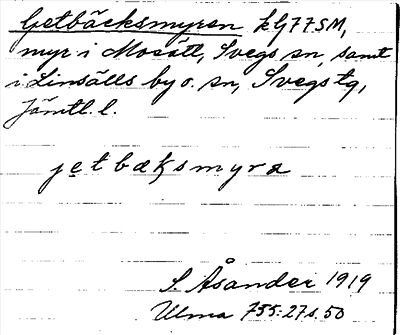 Getbäcksmyren k G77SM,
myr i Mosätt, Svegs sn, samt
i Linsälls by o. sn, Svegs tg,
Jämtl. l.
jetbæksmyra
S. Åsander 1919
Ulma 755:27 s. 50